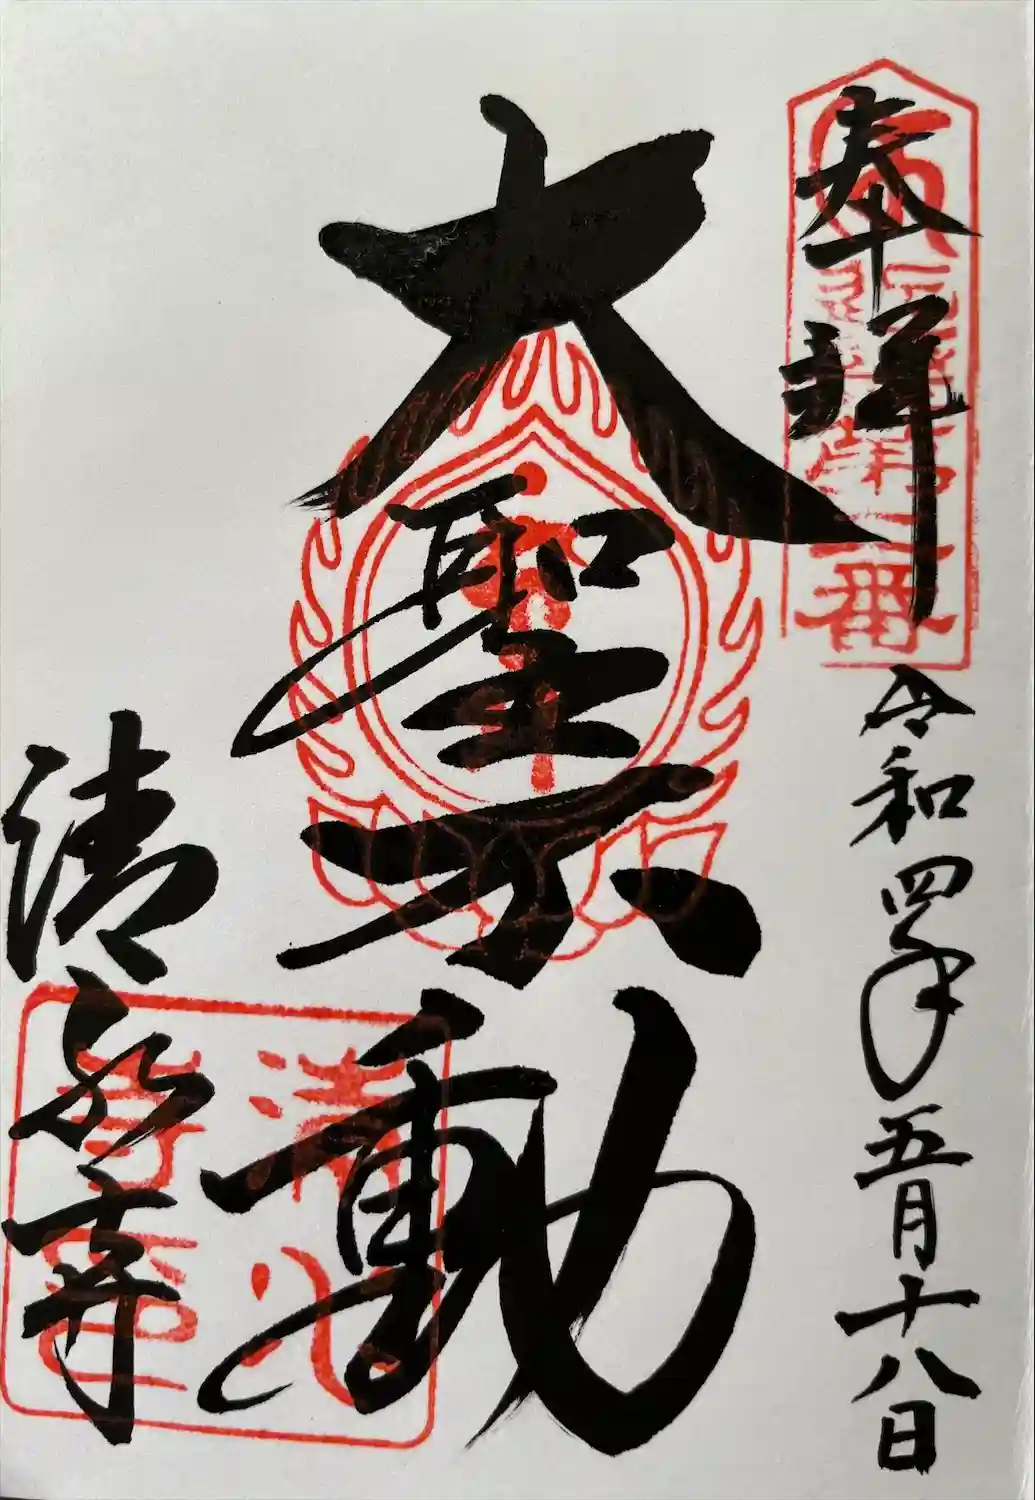 奉拝
令和四年五月十八日
大聖不動
清水寺
第二番
清水寺印